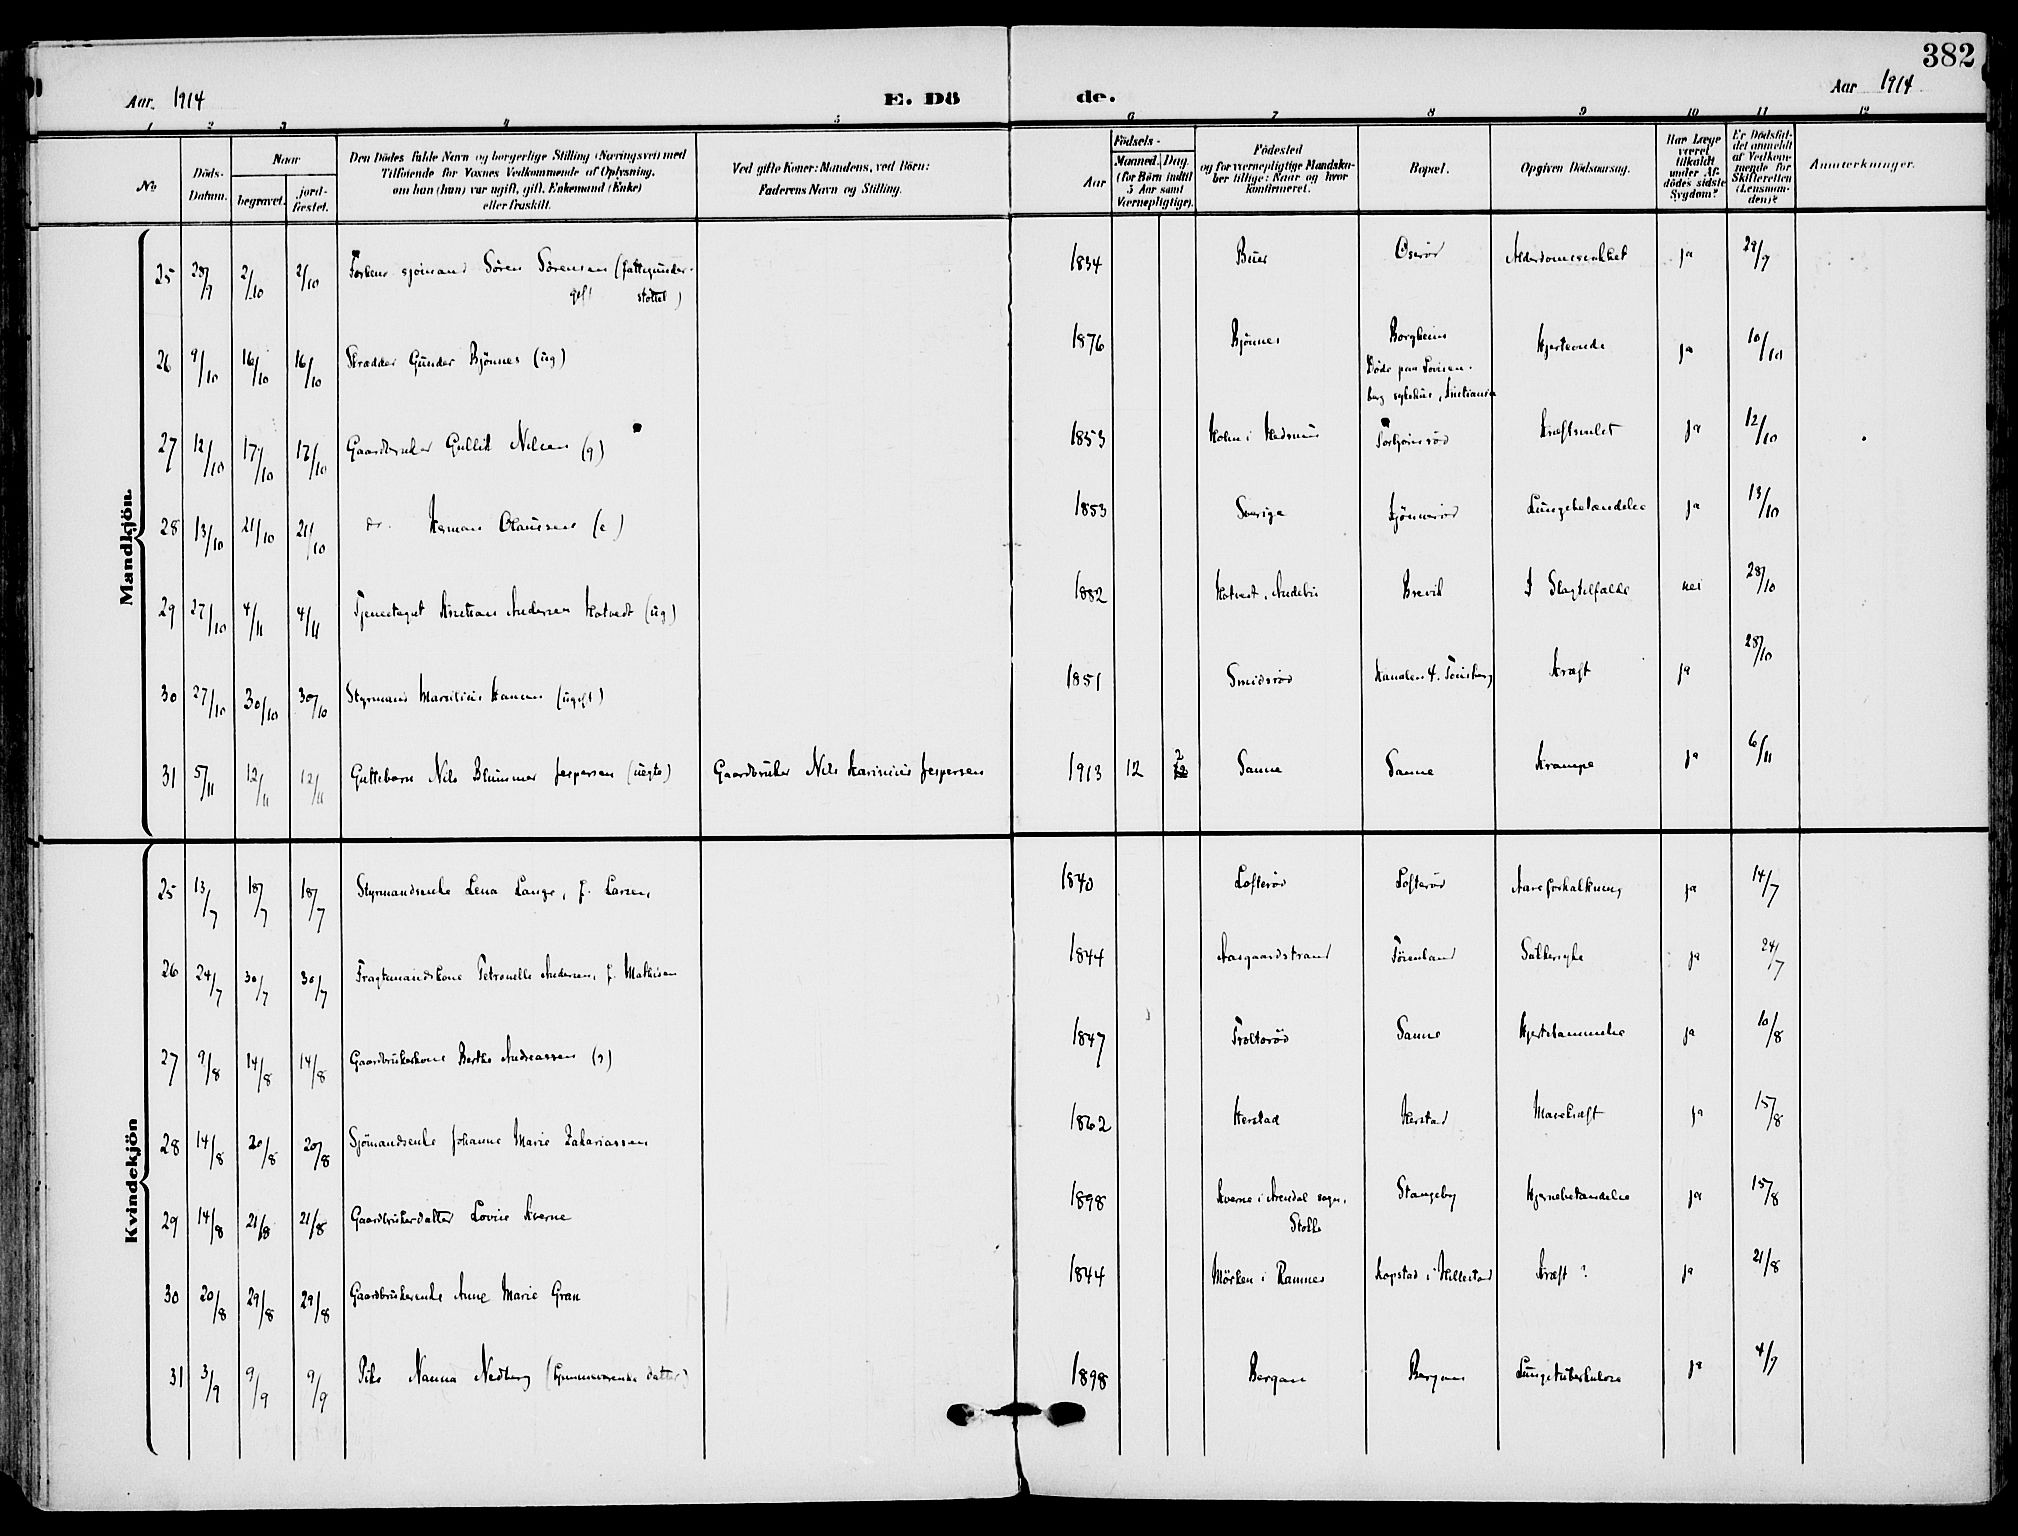 382
Aar. 1914
E. Dö
de.
Aar 1914
1 2 3 4 5 6 7 8 9 10 11 12
No
Döds-
Datum.
Naar
begravet.
jord-
fæstet.
Den Dödes fulde Navn og borgerlige Stilling (Næringsvei) med
Tilföiende for Voxnes Vedkommende af Oplysning,
om han (hun) var ugift, gift, Enkemand (Enke)
eller fraskilt.
Ved gifte Koner: Mandens, ved Börn:
Faderens Navn og Stilling.
Aar
Födsels-
Maaned. Dag.
(for Börn indtil
5 Aar samt
Værnepligtige).
Födested
og for værnepligtige Mandska-
ber tillige: Naar og hvor
konfirmeret.
Bopæl.
Opgiven Dödsaarsag.
Har Læge
været
tilkaldt
under Af-
dödes sidste
Sygdom?
Er Dödsfal-
det anmeldt
af Vedkom-
mende for
Skifteretten
(Lensman-
den)?
Anmærkninger.
Mandkjön.
25 28/9 2/10 2/10 Forhenv sjömand Sören Sörensen (fattigunder- 1834 Buer Oserød Alderdomssvakhet ja 29/9
gift støttet)
26 9/10 16/10 16/10 Skrædder Gunder Bjönnes (ug) 1876 Bjönnes Borgheim Hjerteonde ja 10/10
Döde paa Lovisen-
berg sykehus, Kristiania
27 12/10 17/10 17/10 Gaardbruker Gullik Nilsen (g) 1853 Holm i Hedrum Torbjörnröd Kræftsvulst ja 12/10
28 13/10 21/10 21/10 do. Herman Olaussen (e) 1853 Sverige Lungebetændelse ja 13/10
29 27/10 4/11 4/11 Tjenestegut Kristian Andersen Hotvedt (ug) 1882 Hotvedt, Andebu Brevik Slagtilfælde nei 28/10
30 27/10 30/10 30/10 Styrmand Mauritius Hansen (ugift) 1851 Smidsröd Kanalen 4. Tönsberg Kræft ja 28/10
31 5/11 12/11 12/11 Guttebarn Nils Blummer Jespersen (uegte) Gaardbruker Nils Karinius Jespersen 1913 12 2 Sanne Sanne Krampe ja 6/11
Kvindekjön
25 13/7 18/7 18/7 Styrmandsenke Lena Lange, f. Larsen 1840 Lofteröd Lofteröd Aareforkalkning ja 14/7
26 24/7 30/7 30/7 Fragtemandskone Petronelle Andersen, f. Mathisen 1844 Aasgaardstrand Förenland Sukkersyke ja 24/7
27 9/8 14/8 14/8 Gaardbrukerkone Berthe Andreassen (g) 1847 Trolteröd Sanne Hjertelammelse ja 10/8
28 14/8 20/8 20/8 Sjömandsenke Johanne Marie Zakariassen 1862 Herstad Herstad Mavekræft ja 15/8
29 14/8 21/8 21/8 Gaardbrukerdatter Lovise Kverne 1898 Kverne i Arendal sogn, Stangeby Hjernebetændelse ja 15/8
Stokke
30 20/8 29/8 29/8 Gaardbrukerenke Anne Marie Gran 1844 Mörken i Ramnes Kopstad i Hillestad Kræft? ja 21/8
31 3/9 9/9 9/9 Pike Nanna Nedberg 1898 Bergan Bergan Lungetuberkulose ja 4/9